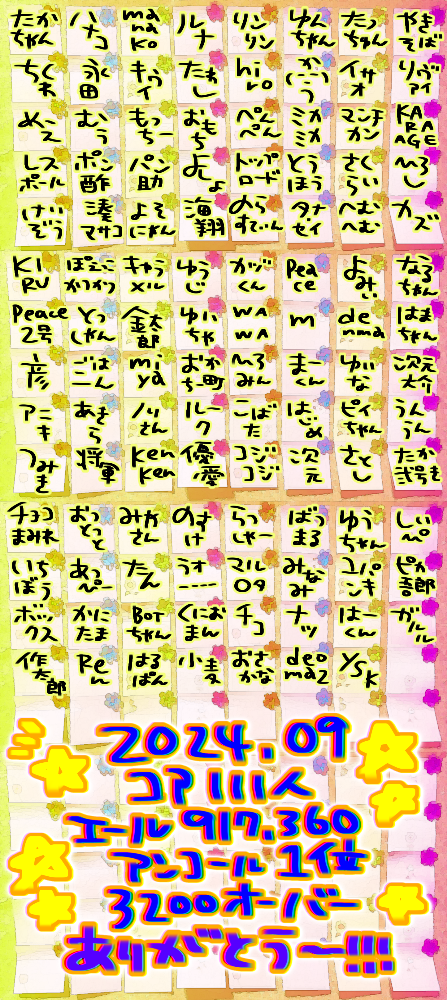 たかちゃん ハナコ manako ルナ リンリン ゆんちゃん たっちゃん やきそば
ちくわ 永田 キウイ たわし hiro か(---)う イサオ リヴァイ
めぐえ むぅ もっちー おもち ぺんぺん ミカミカ マンチカン KARAAGE
レスポール ポン酢 パン助 よしょ トップロード とうほう さくらい へろし
けいぞう 湊マサコ よそにゃん 海翔 のらすてぃん タナセイ へむへむ カズ
KIRU ぽえこかつかつ キャラメル ゆうじ かづくん Peace よみぃ なるちゃん
Peace2号 とっしゃん 金太郎 ゆいちゃ WAWA m denma はまちゃん
彦 ごはーん miya おかち町 へろみん まーくん ゆいな 次元大介
アニキ あきら ノリさん ルーク こばた はじめ ピィちゃん うんうん
つみき 将軍 KenKen 優愛 コジコジ 次元 さとし たか弐号き
チョコまみれ おっとっと みかさん のすけ らっしゃー ばっまる ゆうちゃん しぃぴ
いちぼう あっぴー たん うオ---- マルロタ みなみ ユパンキ ピカ吾郎
ボックス かにたま BOTちゃん くにおまん チコ ナッツ はーくん ガルル
作太郎 Ren はるぱん 小麦 おさかな deoma2 YSK
2024.09
コア111人
エール 917.360
アンコール 1位
3200オーバー
ありがとう〜!!!